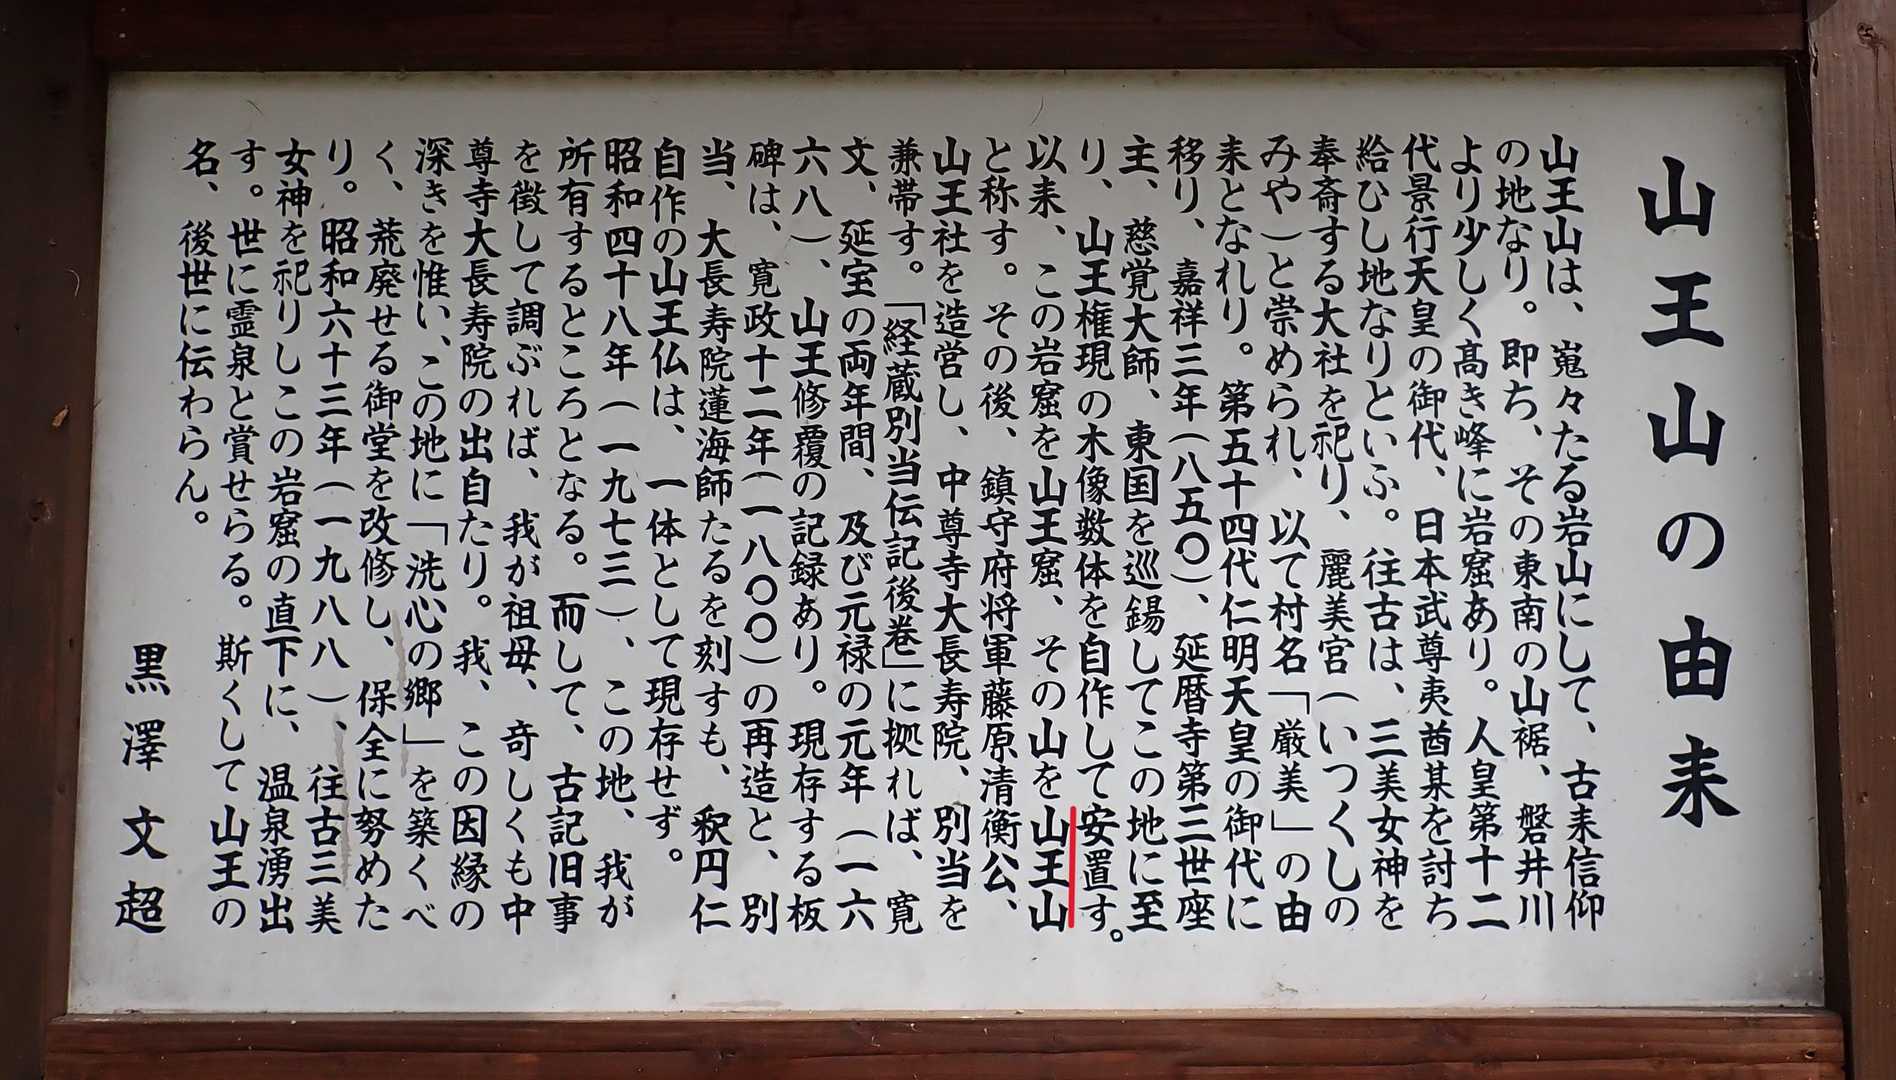 山王山の由来
山王山は、嵬々たる岩山にして、古来信仰
の地なり。即ち、その東南の山裾、磐井川
より少しく高き峰に岩窟あり。人皇第十二
代景行天皇の御代、日本武尊夷酋某を討ち
給ひし地なりといふ。往古は、三美女神を
奉斎する大社を祀り、麗美宮(いつくしの
みや)と崇められ、以て村名「厳美」の由
来となれり。第五十四代仁明天皇の御代に
移り、嘉祥三年(八五〇)、延暦寺第三世座
主、慈覚大師、東国を巡錫してこの地に至
り、山王権現の木像数体を自作して安置す。
以来、この岩窟を山王窟、その山を山王山
と称す。その後、鎮守府将軍藤原清衡公、
山王社を造営し、中尊寺大長寿院、別当を
兼帯す。「経蔵別当伝記後巻」に拠れば、寛
文、延宝の両年間、及び元禄の元年(一六
六八)、山王修覆の記録あり。現存する板
碑は、寛政十二年(一八〇〇)の再造と、別
当、大長寿院蓮海師たるを刻すも、釈円仁
自作の山王仏は、一体として現存せず。
昭和四十八年(一九七三)、この地、我が
所有するところとなる。而して、古記旧事
を徴して調ぶれば、我が祖母、奇しくも中
尊寺大長寿院の出自たり。我、この因縁の
深きを惟い、この地に「洗心の郷」を築くべ
く、荒廃せる御堂を改修し、保全に努めた
り。昭和六十三年(一九八八)、往古三美
女神を祀りしこの岩窟の直下に、温泉湧出
す。世に霊泉と賞せらる。斯くして山王の
名、後世に伝わらん。
黒澤文超